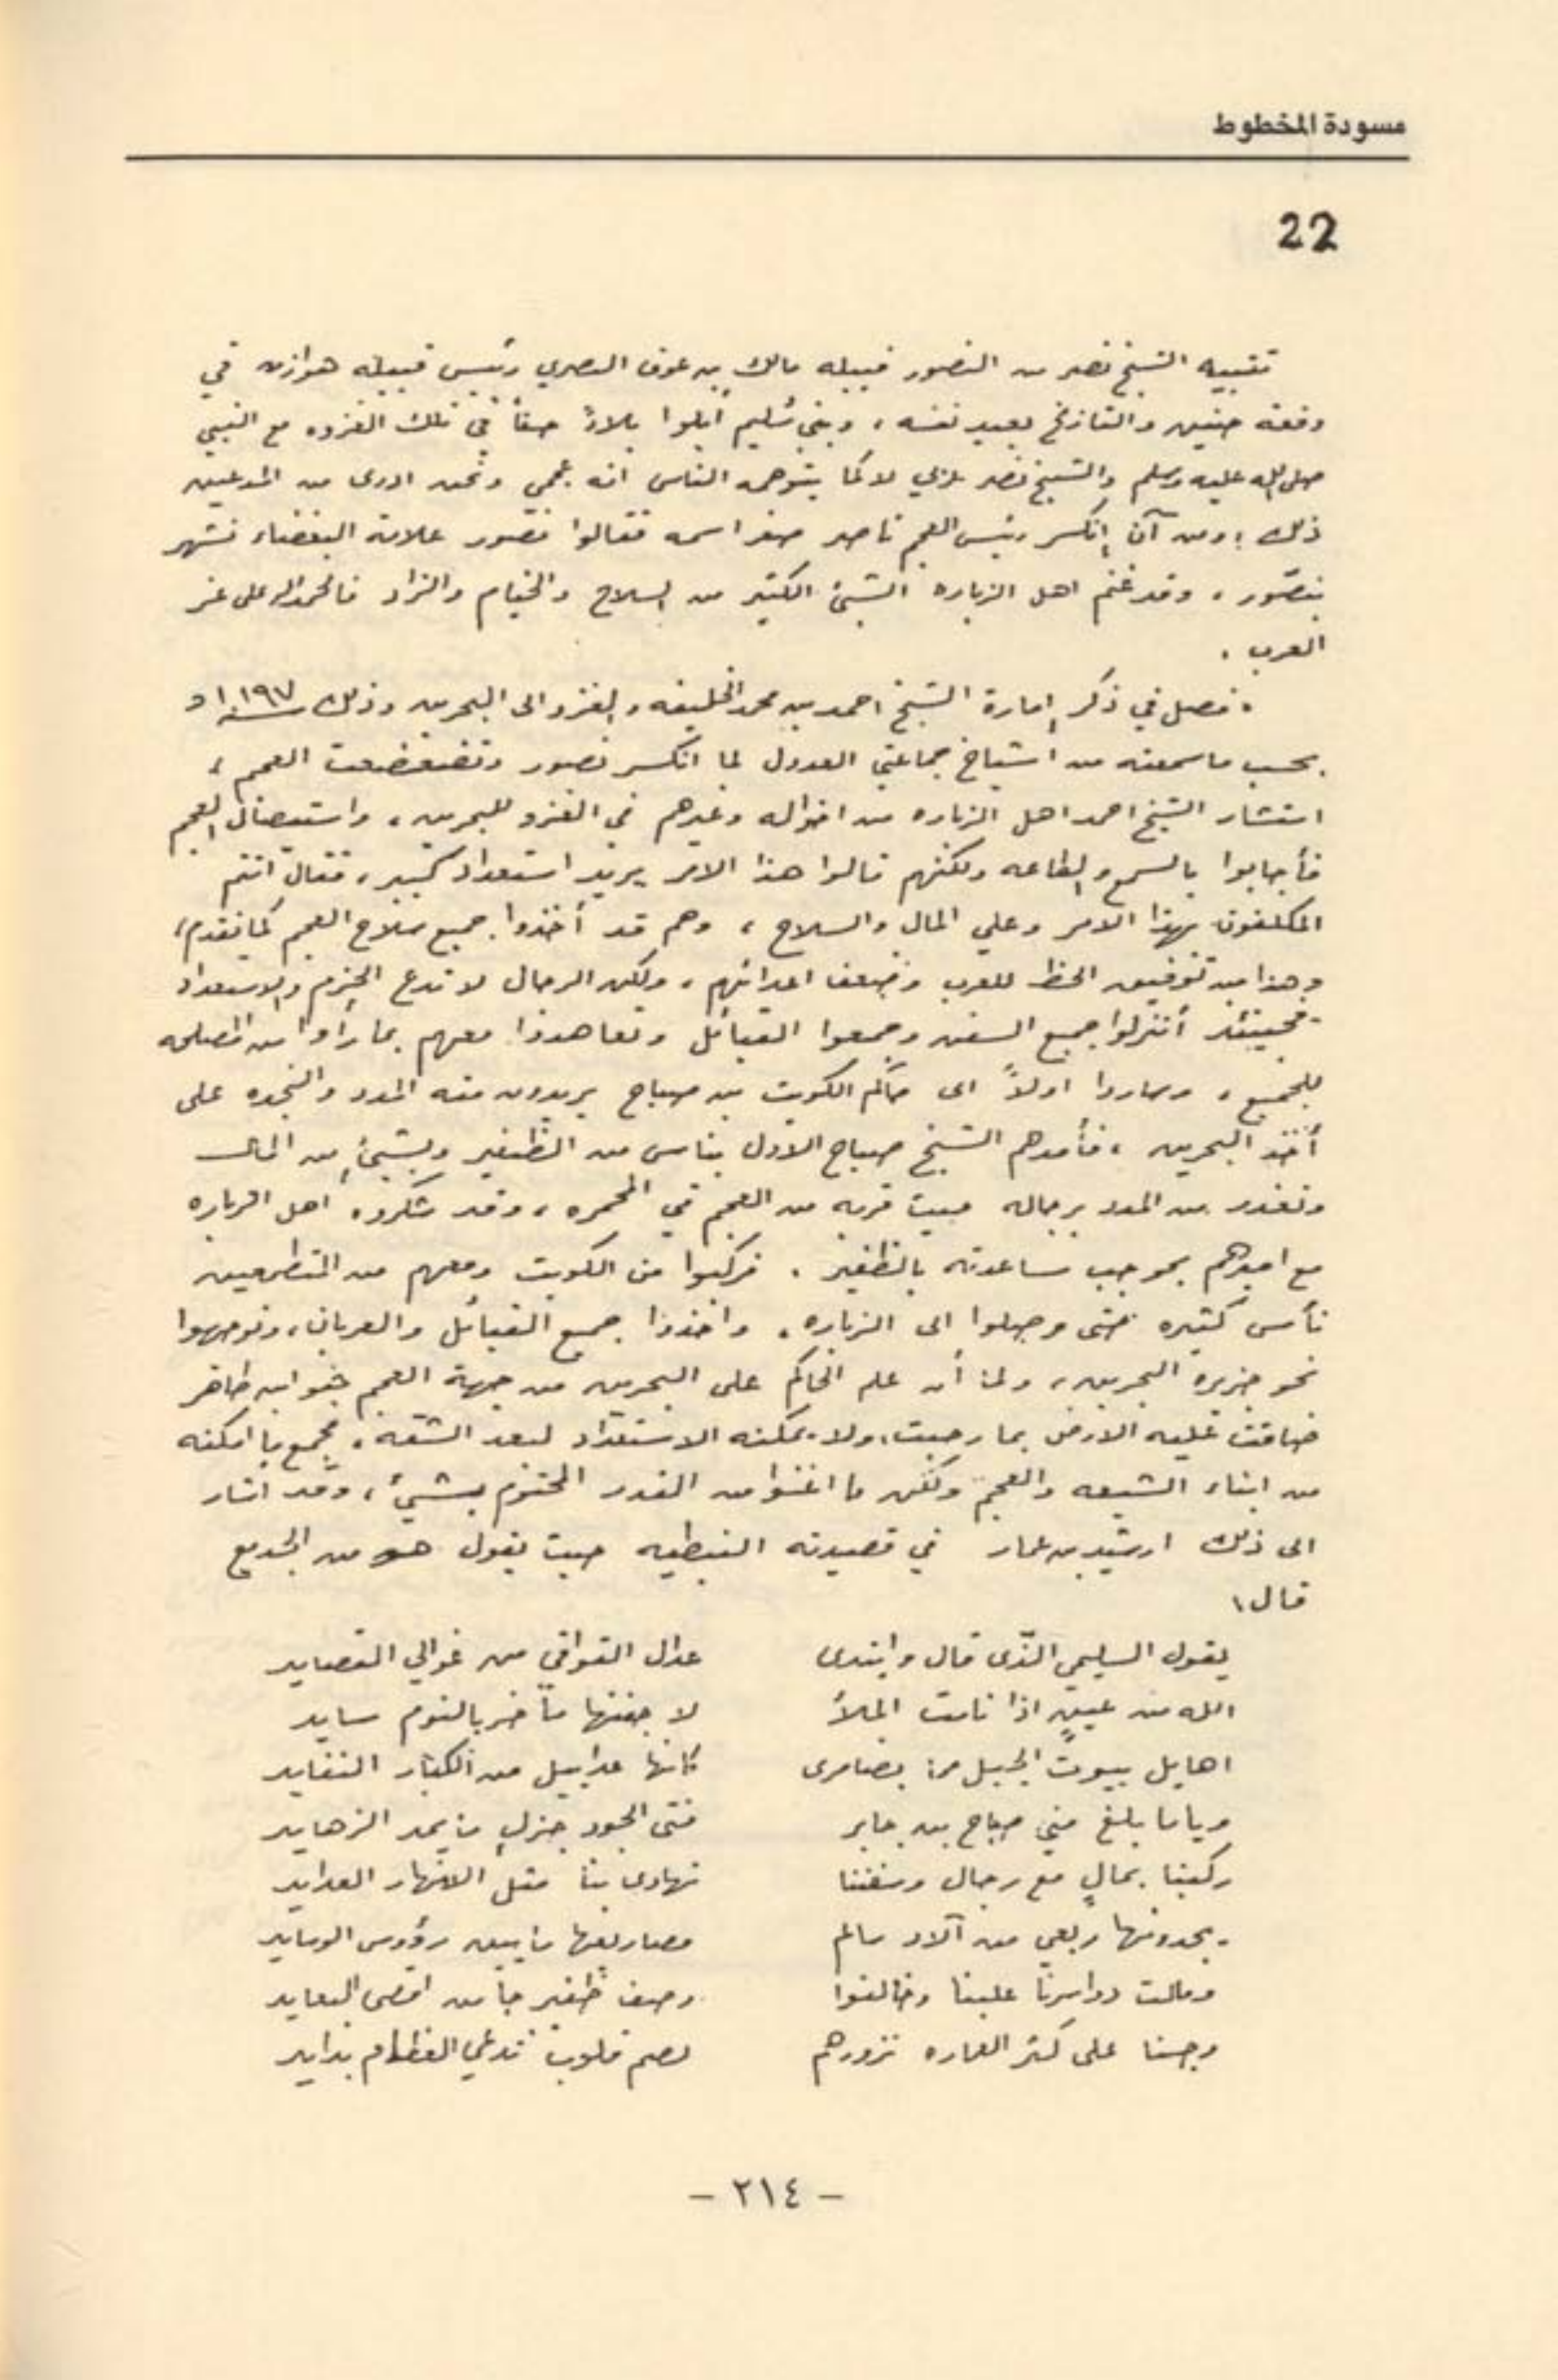 مسودة المخطوط
22
تنبيه الشيخ نصر من النصور قبيله مالك بن عوف النصري رئيس قبيله هوازن في
وقعة حنين والتاريخ يعيد نفسه ، وبني سُليم أبلوا بلاءً حقاً في تلك الغزوه مع النبي
صلى الله عليه وسلم والشيخ نصر لا كما يتوهم الناس انه عجمي ونحن ادرى من المدعين
ذلك ، ومن آن إنكسر رئيس العجم ناصر صغر اسمه فقالوا نصور علامة البغضاء فشهر
بنصّور ، وقد غنم اهل الزباره الشيئ الكثير من السلاح والخيام والزاد فالحمد لله على عز
العرب .
• فصل في ذكر إمارة الشيخ احمد بن محمد الخليفه والغزو الى البحرين وذلك سنة ١١٩٧
بحسب ما سمعته من اشياخ جماعتي العدول لما انكسر نصور وتضعضعت العجم ،
استشار الشيخ احمد اهل الزباره من اخواله وغيرهم في الغزو للبحرين ، واستيصال العجم
فأجابوا بالسمع والطاعه ولكنهم قالوا هذا الامر يريد استعداد كبير ، فقال انتم
المكلفون بهذا الامر وعلي المال والسلاح ، وهم قد أخذوا جميع سلاح العجم كما تقدم ،
وهذا من توفيق الحظ للعرب وضعف اعدائهم ، ولكن الرجال لا تدع الحزم والاستعداد
فحينئذ أنزلوا جميع السفن وجمعوا القبائل وتعاهدوا معهم بما رأوا من المصلحه
للجميع ، وساروا اولاً الى حاكم الكويت بن صباح يريدون منه المدد والنجده على
أخذ البحرين ، فأمدهم الشيخ صباح الاول بناس من الظفير وبشيئٍ من المال
وتعذر من المدد برجاله حيث قربه من العجم في المحمره ، وقد شكروه اهل الزباره
مع اميرهم بموجب مساعدته بالظفير . فركبوا من الكويت ومعهم من المتطوعين
ناس كثيره حتى وصلوا الى الزباره . واخذوا جميع القبائل والعربان ، وتوجهوا
نحو جزيره البحرين ، ولما أن علم الحاكم على البحرين من جهة العجم ظاهر
ضاقت عليه الارض بما رحبت ، ولا يمكنه الاستعداد لبعد الشقه ، فجمع ما امكنه
من ابناء الشيعه والعجم ولكن ما اغنوا من القدر المحتوم بشيئ ، وقد اشار
الى ذلك ارشيد بن عمار في قصيدته النبطيه حيث يقول هو من
قال ،
يقول السليمي الذّى قال وابتدى عدال القوافي من غوالي القصايد
الله من عينٍ اذا نامت الملأ لا جفنها متأخر بالنوم سايد
اهايل بيوت الجيل كانها من الكبار النفايد
وياما بلغ مني صباح بن جابر فتى الجود جزلٍ ما يمد الزهايد
ركبنا بمالٍ مع رجال وسفننا تهادى بنا مثل الانهار العدايد
يحدونها ربعي من آلاد سالم مصاريعها ما بين رؤوس الوسايد
ومالت دواسرنا علينا وخالفوا وصف ظفير جا من اقصى البعايد
وجينا على كثر العماره نزورهم بصم قلوب تدعي العظام بدايد
– ٢١٤ –